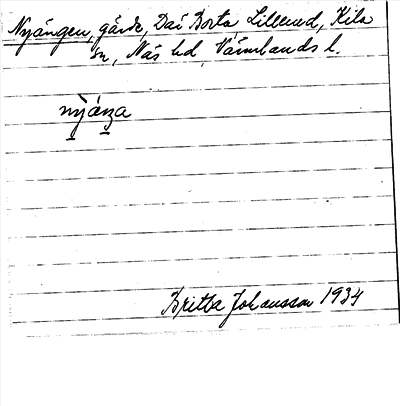 Nyängen, gärde, Där Borta, Lillerud, Kila
sn, Näs hd, Värmlands l.
nỳánza
Britta Johansson 1934